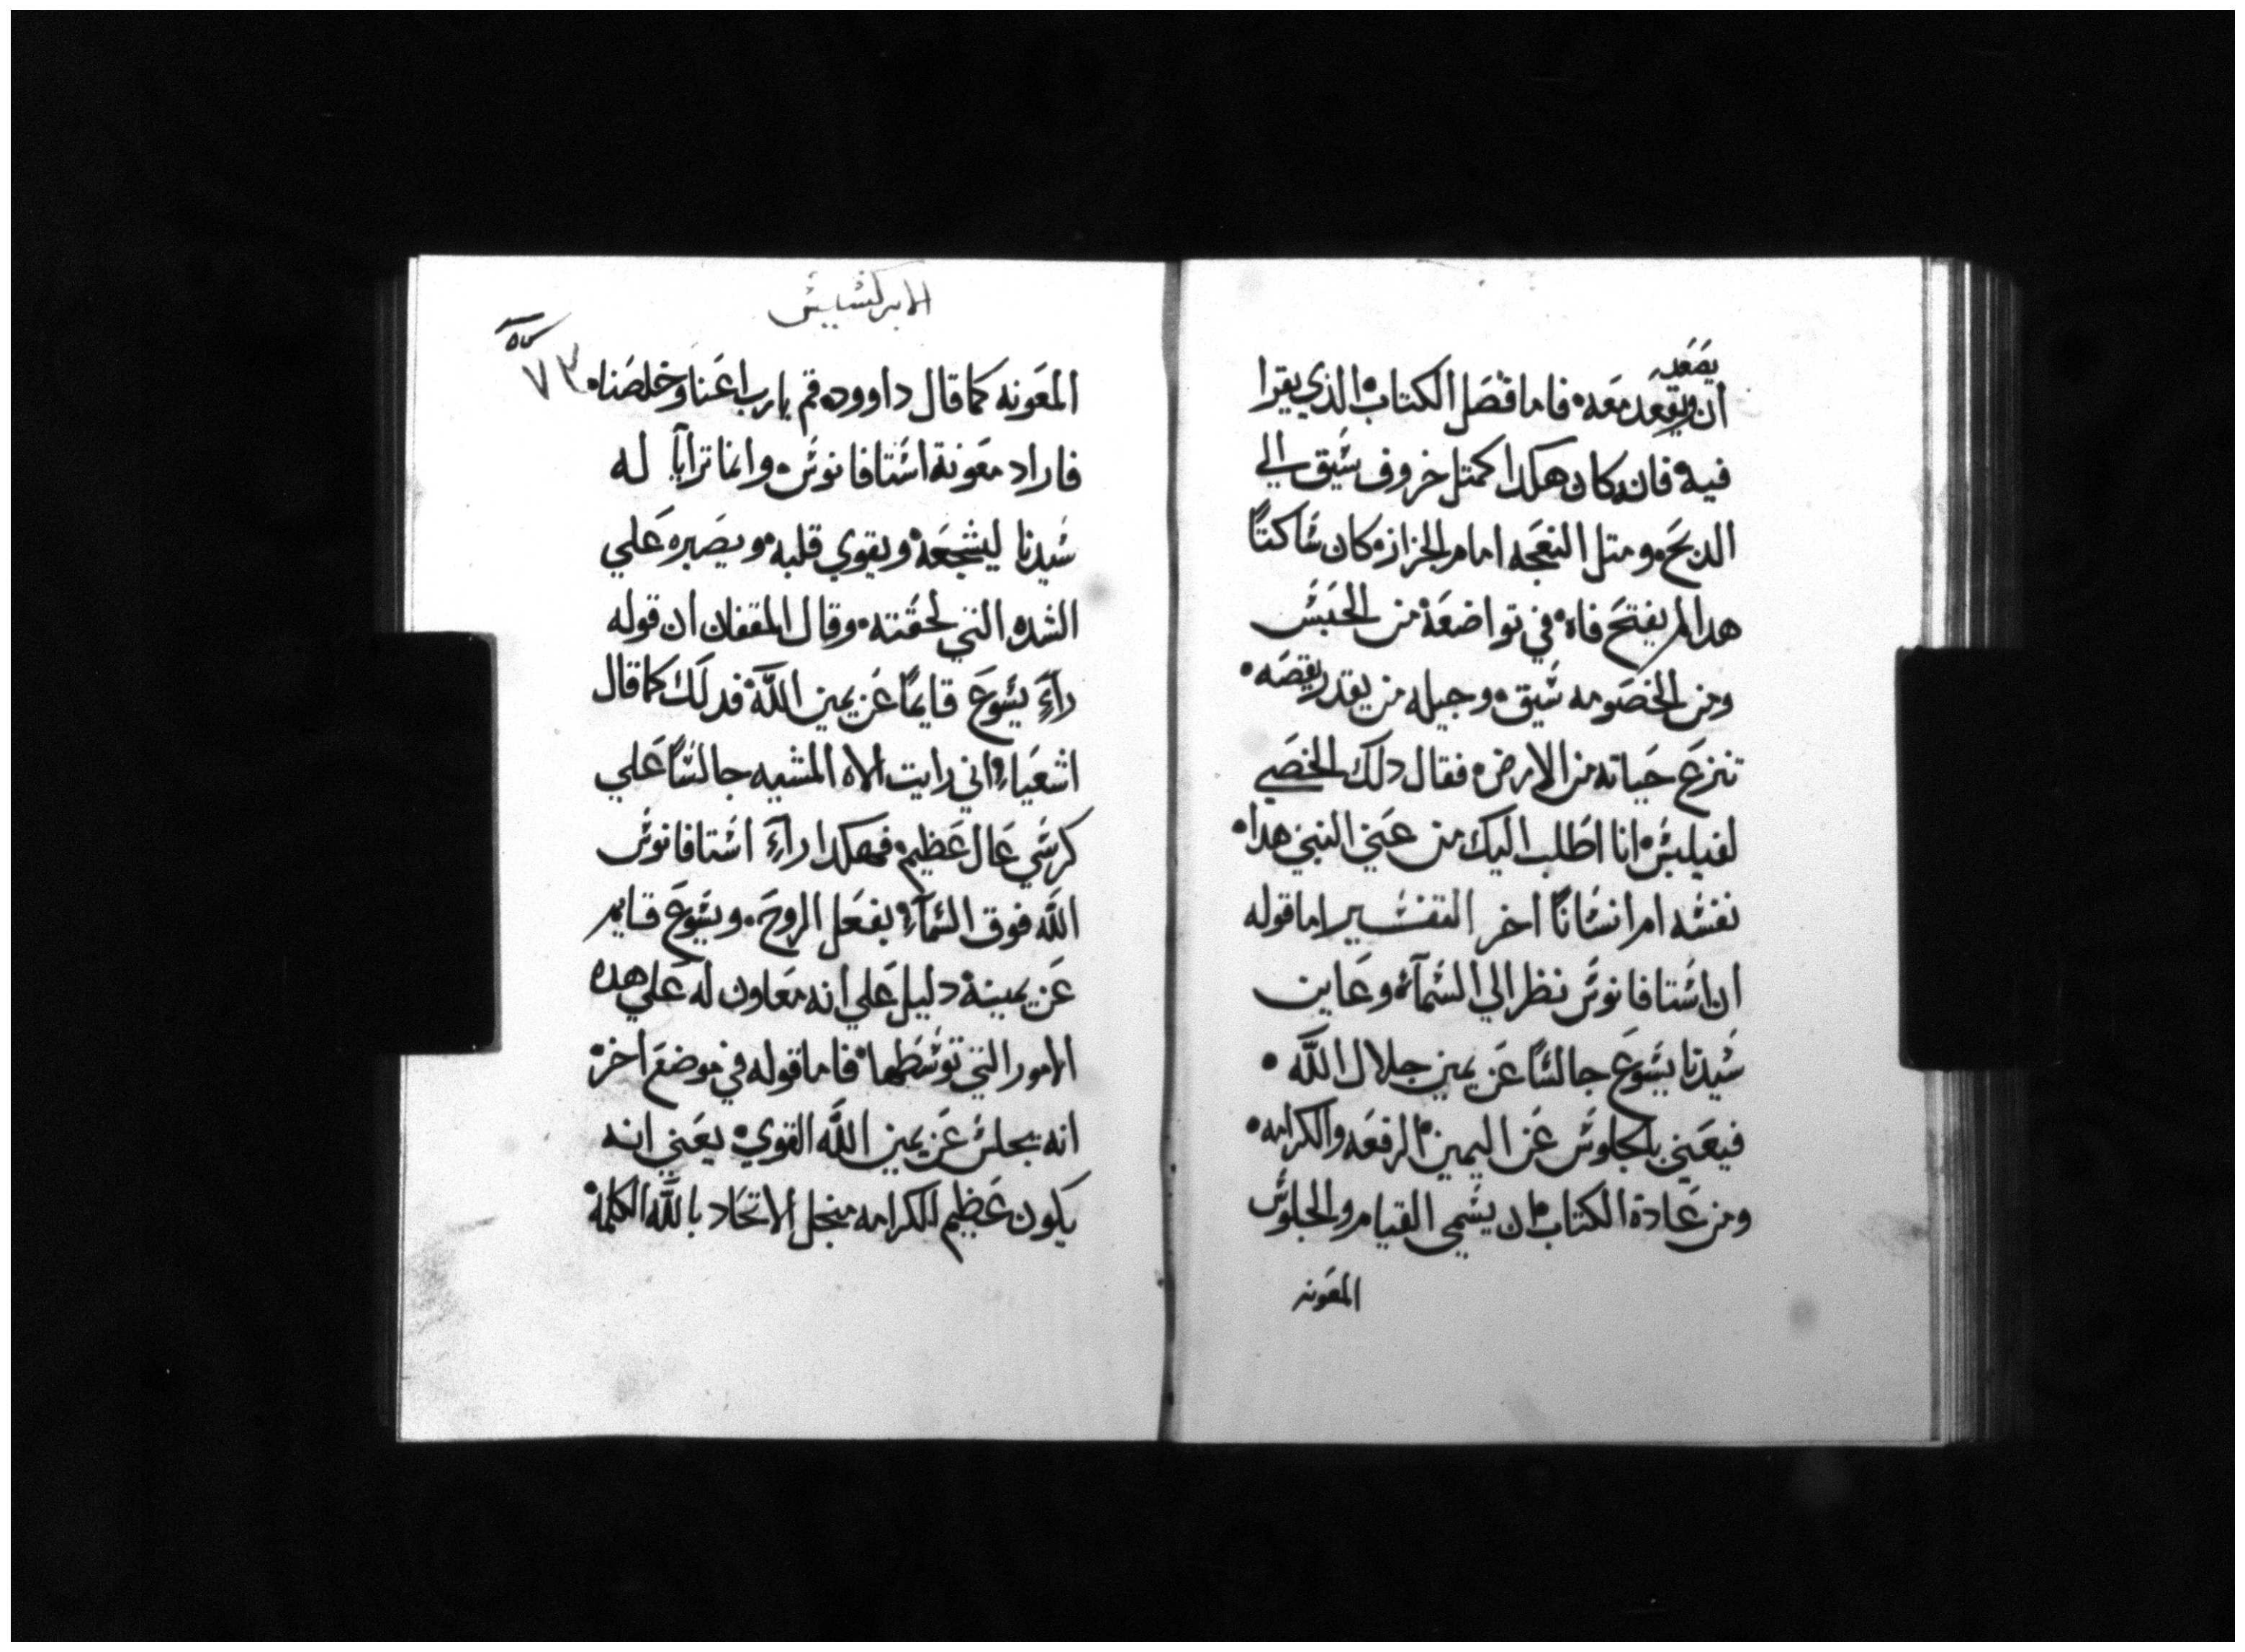 يصعد
ان ويقعد معه فاما فصل الكتاب الذي يقرا
فيه فانه كان هكدا كمتل خروف شيق الي
الدبح ومتل النعجه امام الجزاز كان شاكتًا
هدا لم يفتح فاه في تواضعة من الحبش
ومن الخصومه شيق وجيله من يقدر يقصه
تنزع حياته من الارض فقال دلك الخصي
لفيلبش انا اطلب اليك من عني النبي هدا
نفشه ام انشانًا اخر التفشير اما قوله
ان اشتافانوش نظر الي الشمآء وعاين
شيدنا يشوع جالشًا عن يمين جلال اللّه
فيعني بالجلوش عن اليمين الرفعه والكرامه
ومن عادة الكتاب ان يشمي القيام والجلوش
المعونه
الابركشيش
٧٣
المعونه كما قال داوود قم يارب اعنا وخلصنا
فاراد معونة اشتافانوش وانما ترايا له
شيدنا ليشجعة ويقوي قلبه ويصبره علي
الشده التي لحقته وقال المقفان ان قوله
راءَ يشوع قايمًا عن يمين اللّه فدلك كما قال
اشعياء اني رايت الاه المشيه جالشًا علي
كرشي عال عظيم فهكدا راءَ اشتافانوش
اللّه فوق الشمآء بفعل الروح ويشوع قايم
عن يمينة دليل علي انه معاون له علي هده
الامور التي توشطها فاما قوله في موضع اخر
انه يجلش عن يمين اللّه القوي يعني انه
يكون عظيم الكرامه منجل الاتحاد باللّه الكلمة